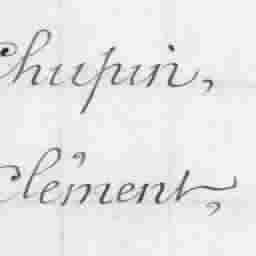 Chupin,
Clément,